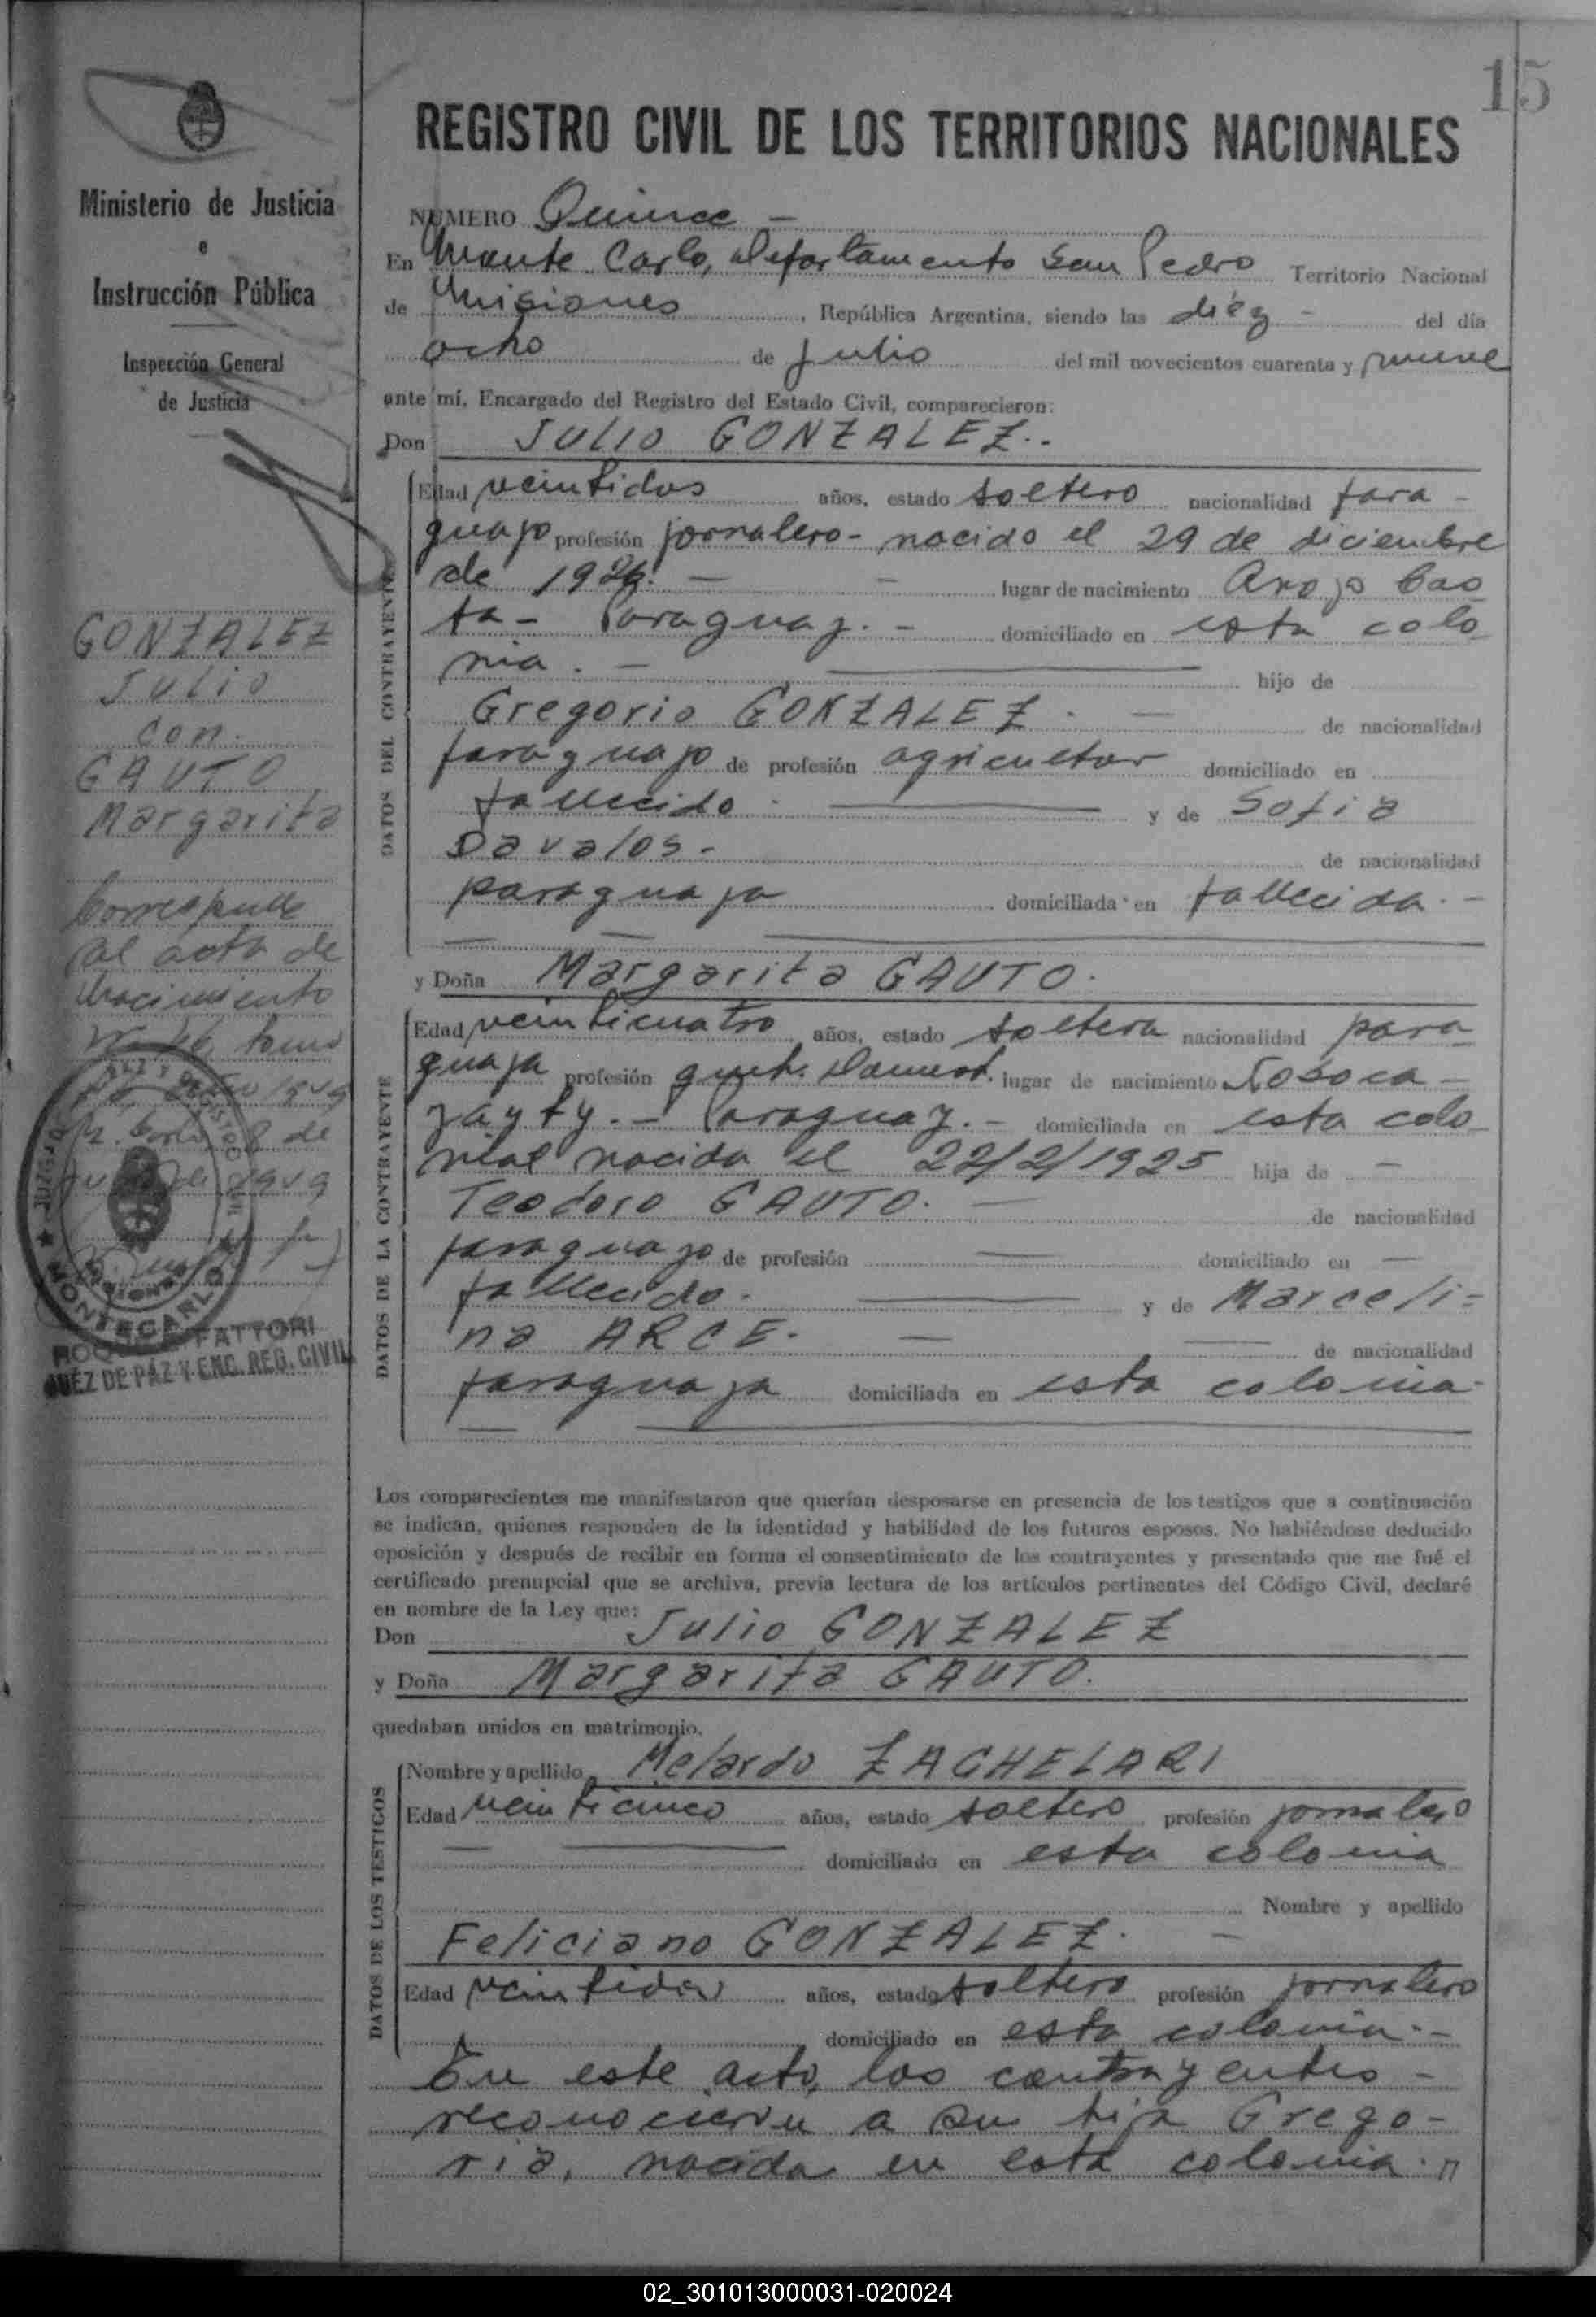 15
REGISTRO CIVIL DE LOS TERRITORIOS NACIONALES
Ministerio de Justicia
e
Instrucción Pública
Inspección General
de Justicia
GONZALEZ
Julio
con
GAUTO
Margarita
Corresponde
al acta de
Nacimiento
tomo
de
1949
MONTECARLO
FATTORI
JUEZ DE PAZ Y ENC. REG. CIVIL
NUMERO Quince -
En Monte Carlo, departamento San Pedro Territorio Nacional
de Misiones, República Argentina, siendo las diéz - del día
ocho de julio del mil novecientos cuarenta y nueve
ante mí, Encargado del Registro del Estado Civil, comparecieron:
Don JULIO GONZALEZ.-
DATOS DEL CONTRAYENTE
Edad veintidos años, estado soltero nacionalidad para-
guayo profesión jornalero- nacido el 29 de diciembre
de lugar de nacimiento Arroyo Bas
ta- Paraguay.- domiciliado en esta colo
nia. - hijo de
Gregorio GONZALEZ. - de nacionalidad
paraguayo de profesión agricultor domiciliado en
fallecido. y de Sofia
Davalos- de nacionalidad
paraguaya domiciliada en fallecida.-
y Doña Margarita GAUTO.
DATOS DE LA CONTRAYENTE
Edad veinticuatro años, estado soltera nacionalidad para-
guaya profesión queh. Domest. lugar de nacimiento
Paraguay.- domiciliada en esta colo-
nia nacida el 22/2/1925 hija de -
Teodoro GAUTO. - de nacionalidad
paraguayo de profesión — domiciliado en —
fallecido. — y de Marceli=
na ARCE. - de nacionalidad
paraguaya domiciliada en esta colonia-
Los comparecientes me manifestaron que querían desposarse en presencia de los testigos que a continuación
se indican, quienes responden de la identidad y habilidad de los futuros esposos. No habiéndose deducido
oposición y después de recibir en forma el consentimiento de los contrayentes y presentado que me fué el
certificado prenupcial que se archiva, previa lectura de los artículos pertinentes del Código Civil, declaré
en nombre de la Ley que:
Don Julio GONZALEZ
y Doña Margarita GAUTO.
quedaban unidos en matrimonio.
DATOS DE LOS TESTIGOS
Nombre y apellido Melardo ZACHELARI
Edad veinticinco años, estado soltero profesión jornalero
domiciliado en esta colonia
Nombre y apellido
Feliciano GONZALEZ. -
Edad veintidos años, estado soltero profesión jornalero
domiciliado en esta colonia.-
En este acto, los contrayentes -
reconocieron a su hija Grego-
ria, nacida en esta colonia.
02_301013000031-020024